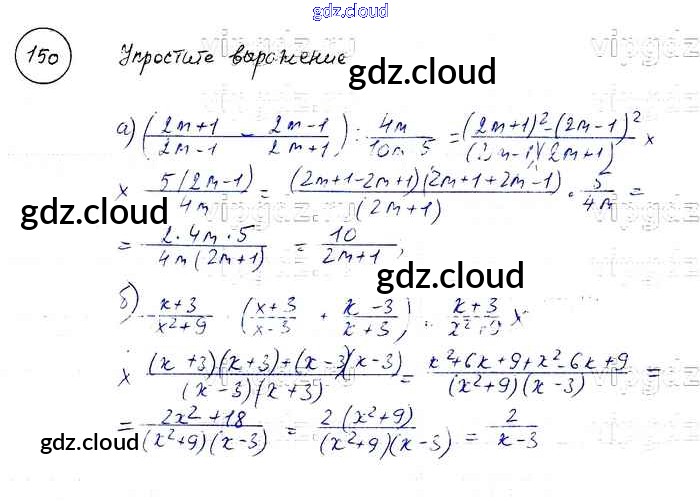 gdz.cloud
150 Упростите выражение
gdz.cloud
а) ((2m+1)/(2m-1) - (2m-1)/(2m+1)) : 4m/(10m-5) = ((2m+1)² - (2m-1)²)/((2m-1)(2m+1)) ×
× 5(2m-1)/4m = (2m+1-2m+1)(2m+1+2m-1)/(2m+1) · 5/4m =
gdz.cloud
= 2·4m·5/4m(2m+1) = 10/(2m+1);
gdz.cloud
б) (x+3)/(x²+9) · ((x+3)/(x-3) + (x-3)/(x+3)) = (x+3)/(x²+9) ×
× ((x+3)(x+3)+(x-3)(x-3))/((x-3)(x+3)) = (x²+6x+9+x²-6x+9)/((x²+9)(x-3)) =
= (2x²+18)/((x²+9)(x-3)) = 2(x²+9)/((x²+9)(x-3)) = 2/(x-3)
gdz.cloud
gdz.cloud